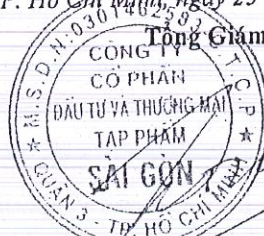 P. Hồ Chí Minh, ngày 25
Tổng Giám
M.S.D.N:0301402593 T.C.P
CÔNG TY
CỔ PHẦN
ĐẦU TƯ VÀ THƯƠNG MẠI
TẠP PHẨM
SÀI GÒN
QUẬN 3 - TP. HỒ CHÍ MINH